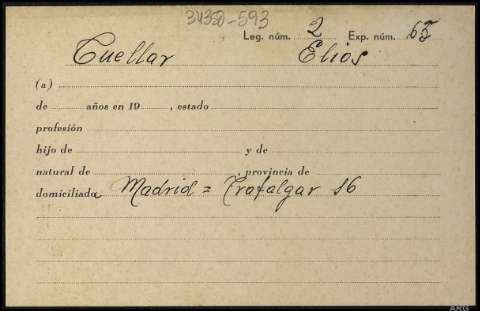 3430-593
Leg. núm. 2 Exp. núm. 65
Cuellar Elios
(a)
de años en 19 , estado
profesión
hijo de y de
natural de , provincia de
domiciliada Madrid = Trafalgar 16
ARG